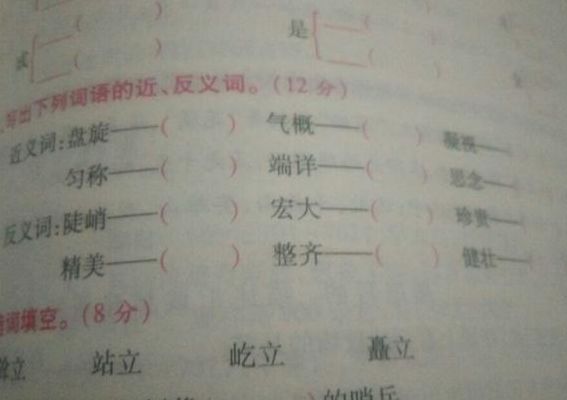 或 (    )
(    )
是 (    )
(    )
写出下列词语的近、反义词。(12分)
近义词:盘旋——(    ) 气概——(    )
匀称——(    ) 端详——(    ) 思念——
反义词:陡峭——(    ) 宏大——(    ) 珍贵——
精美——(    ) 整齐——(    ) 健壮——
词填空。(8分)
立 站立 屹立 矗立
(    )的哨兵